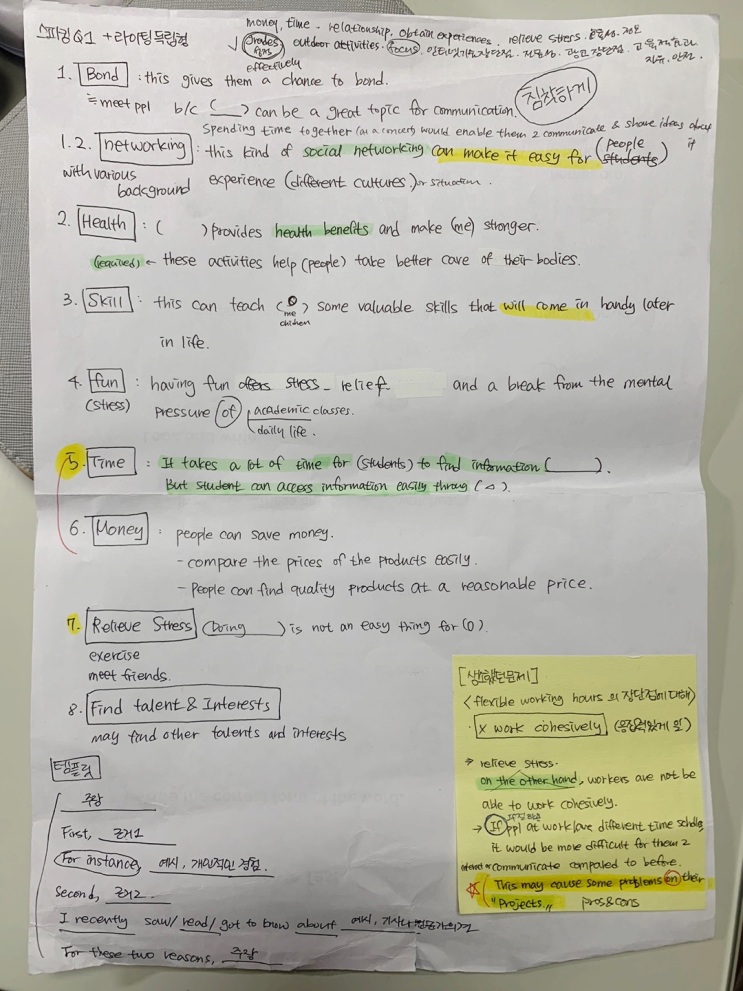 스피킹Q1 + 라이팅독립형
money, time. relationship, obtain experiences, relieve stress.
√ Grades outdoor activities. Focus,
effectively
1. Bond : this gives them a chance to bond.
≒meet ppl b/c ( ) can be a great topic for communication.
침착하게
Spending time together (at a concert) would enable them 2 communicate & share ideas about it
1.2. networking : this kind of social networking can make it easy for (people students)
with various background experience (different cultures.) or situation.
2. Health : ( ) provides health benefits and make (me) stronger.
(required) ← these activities help (people) take better care of their bodies.
3. Skill : this can teach ( me children ) some valuable skills that will come in handy later
in life.
4. fun : having fun offers stress_ relief and a break from the mental
(stress) pressure of academic classes.
daily life.
5. Time : It takes a lot of time for (students) to find information ( ).
But student can access information easily throug (△).
6. Money : people can save money.
- compare the prices of the products easily.
- People can find quality products at a reasonable price.
7. Relieve Stress (Doing ) is not an easy thing for (O).
exercise
meet friends.
8. Find talent & Interests
may find other talents and interests
템플릿
주장
First, 근거1
For instance, 예시, 개인적인 경험.
Second, 근거2.
I recently saw/ read/ got to know about 예시, 기사나 전문가의견
For these two reasons, 주장
<flexible working hours 의 장단점에 대해>
X work cohesively (응집력있게 일)
→ relieve stress.
on the other hand, workers are not be
able to work cohesively.
→ If ppl at work have different time schdle,
it would be more difficult for them 2
communicate compaled to before.
☆ This may cause some problems on their
"Projects." pros&cons